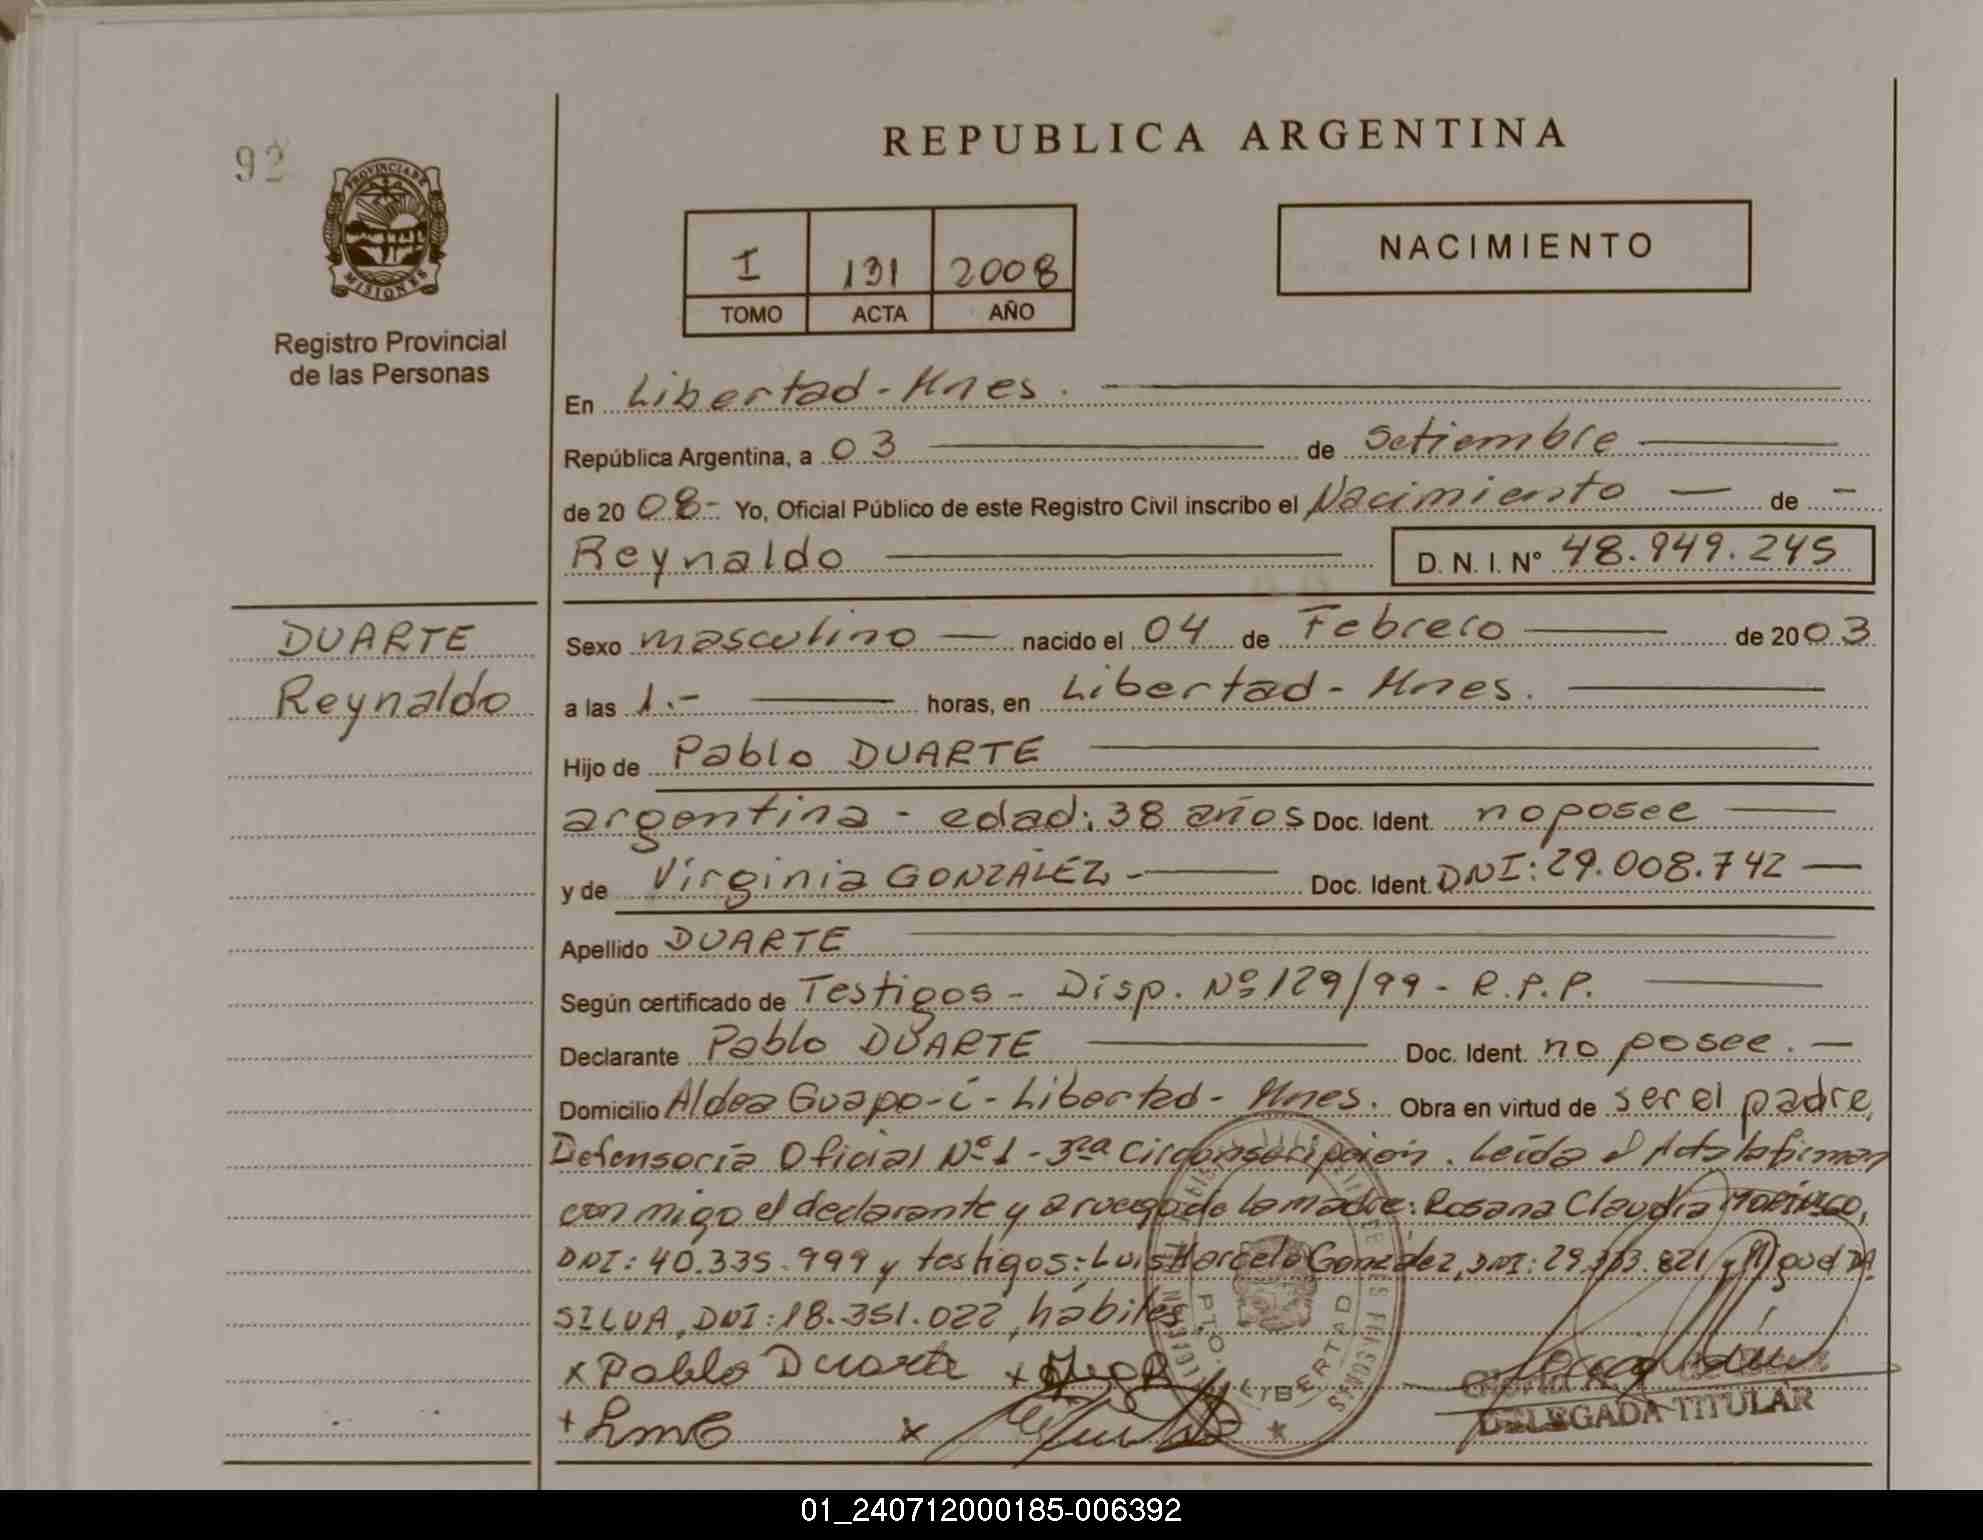 92
REPUBLICA ARGENTINA
PROVINCIA DE
MISIONES
I 131 2008
TOMO ACTA AÑO
NACIMIENTO
Registro Provincial
de las Personas
En Libertad - Mnes.
República Argentina, a 03 de Setiembre
de 20 08- Yo, Oficial Público de este Registro Civil inscribo el Nacimiento — de -
Reynaldo D. N. I. Nº 48.949.245
DUARTE
Reynaldo
Sexo masculino — nacido el 04 de Febrero de 2003
a las 1.- horas, en Libertad - Mnes.
Hijo de Pablo DUARTE
argentina - edad: 38 años Doc. Ident. no posee
y de Virginia GONZALEZ - Doc. Ident. DNI: 29.008.742
Apellido DUARTE
Según certificado de Testigos - Disp. Nº 129/99 - R.P.P.
Declarante Pablo DUARTE Doc. Ident. no posee. —
Domicilio Aldea Guapo-i - Libertad - Mnes. Obra en virtud de ser el padre,
Defensoría Oficial Nº 1 - 3ra circunscripción. Leída el Acta la firman
conmigo el declarante y a ruego de la madre: Rosana Claudia
DNI: 40.335.999 y testigos: Luis Marcelo Gonzalez, DNI: 29.333.821 y Miguel DA
SILVA, DNI: 18.351.022, hábiles.
x Pablo Duarte +
+ LmG x
PTO. LIBERTAD
DELEGADA TITULAR
01_240712000185-006392